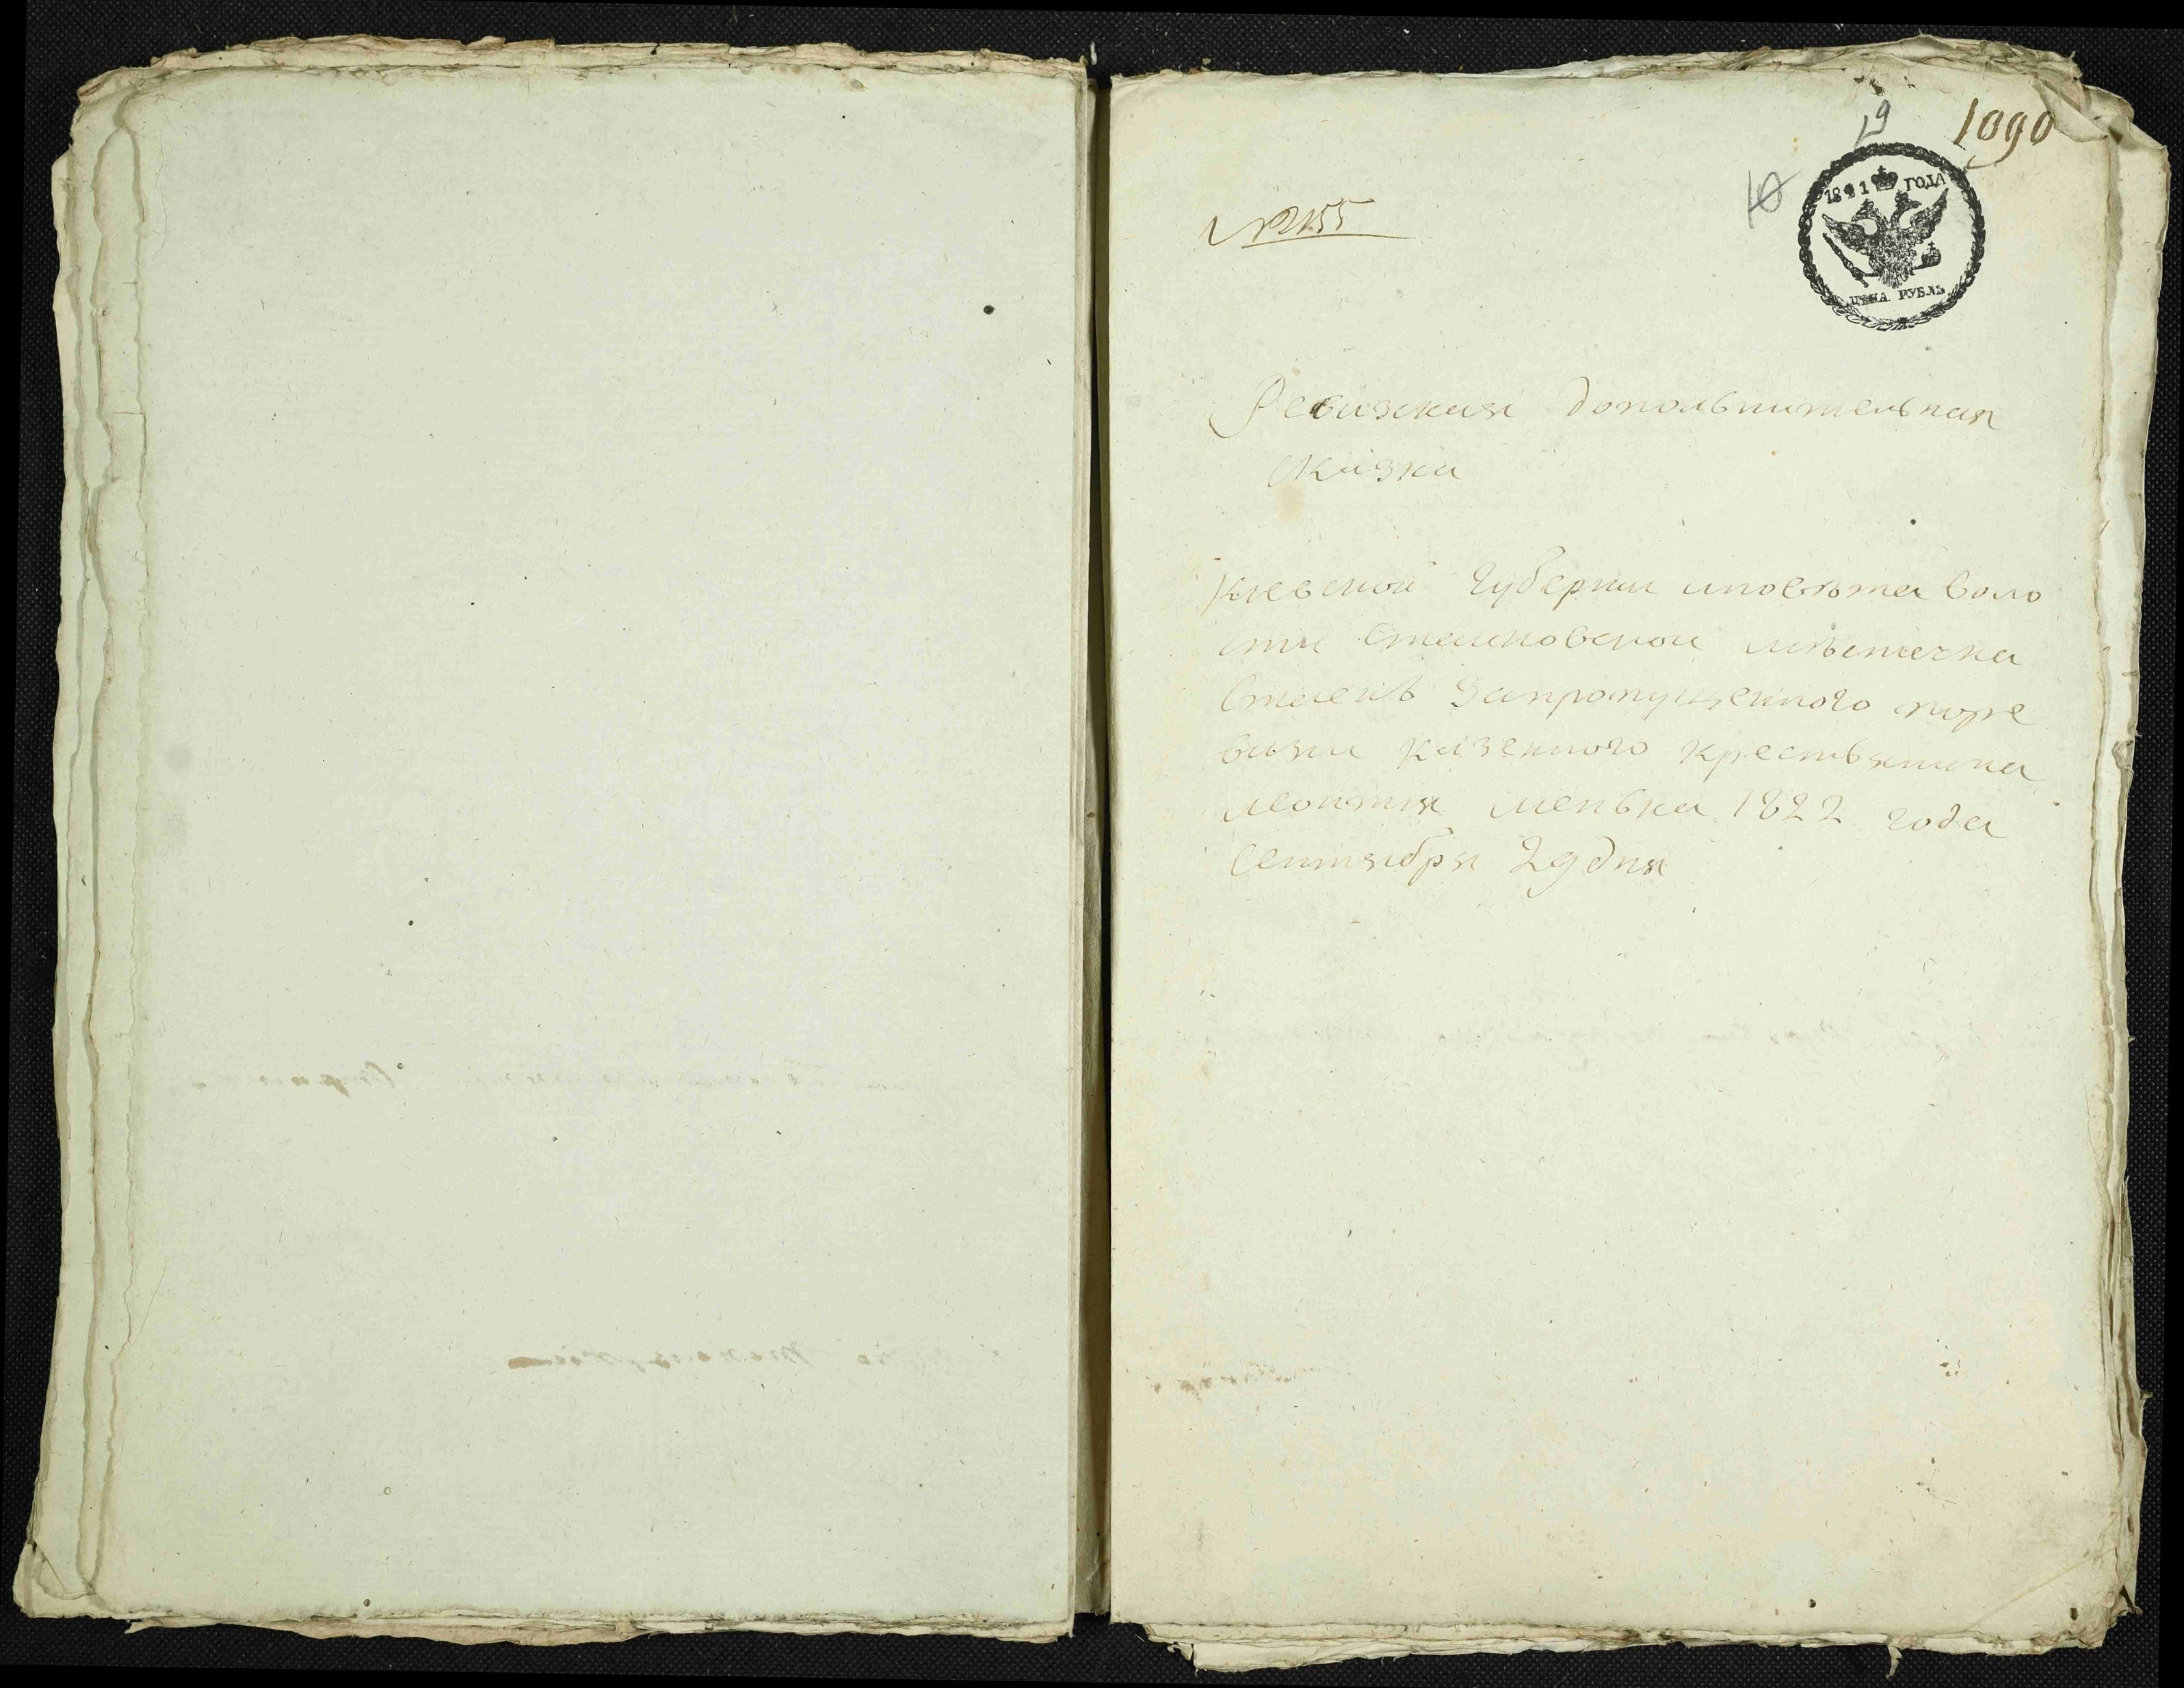 19 1090
10
№ 2155
1821 ГОДА
ЦѢНА РУБЛЬ
Ревизская допольнительная
сказка
Киевской Губернии иповѣта воло
сти Стаиковской мѣстечка
Стаекъ Запропущенного поре
визии казенного крестьянина
леонтия менька 1822 года
Сентября 29 дня